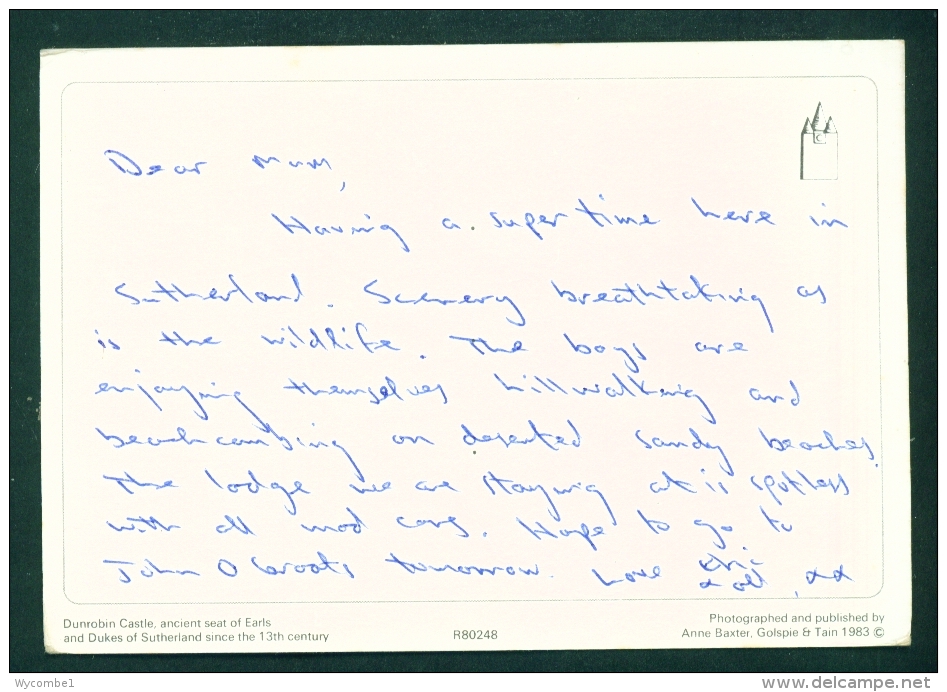 Dear Mum,
Having a super time here in
Sutherland. Scenery breathtaking as
is the wildlife. The boys are
enjoying themselves hillwalking and
beachcombing on deserted sandy beaches.
The lodge we are staying at is spotless
with all mod cons. Hope to go to
John O Groats tomorrow. Love
& all, xx
Dunrobin Castle, ancient seat of Earls
and Dukes of Sutherland since the 13th century
R80248
Photographed and published by
Anne Baxter, Golspie & Tain 1983 ©
Wycombe1
www.delcampe.net